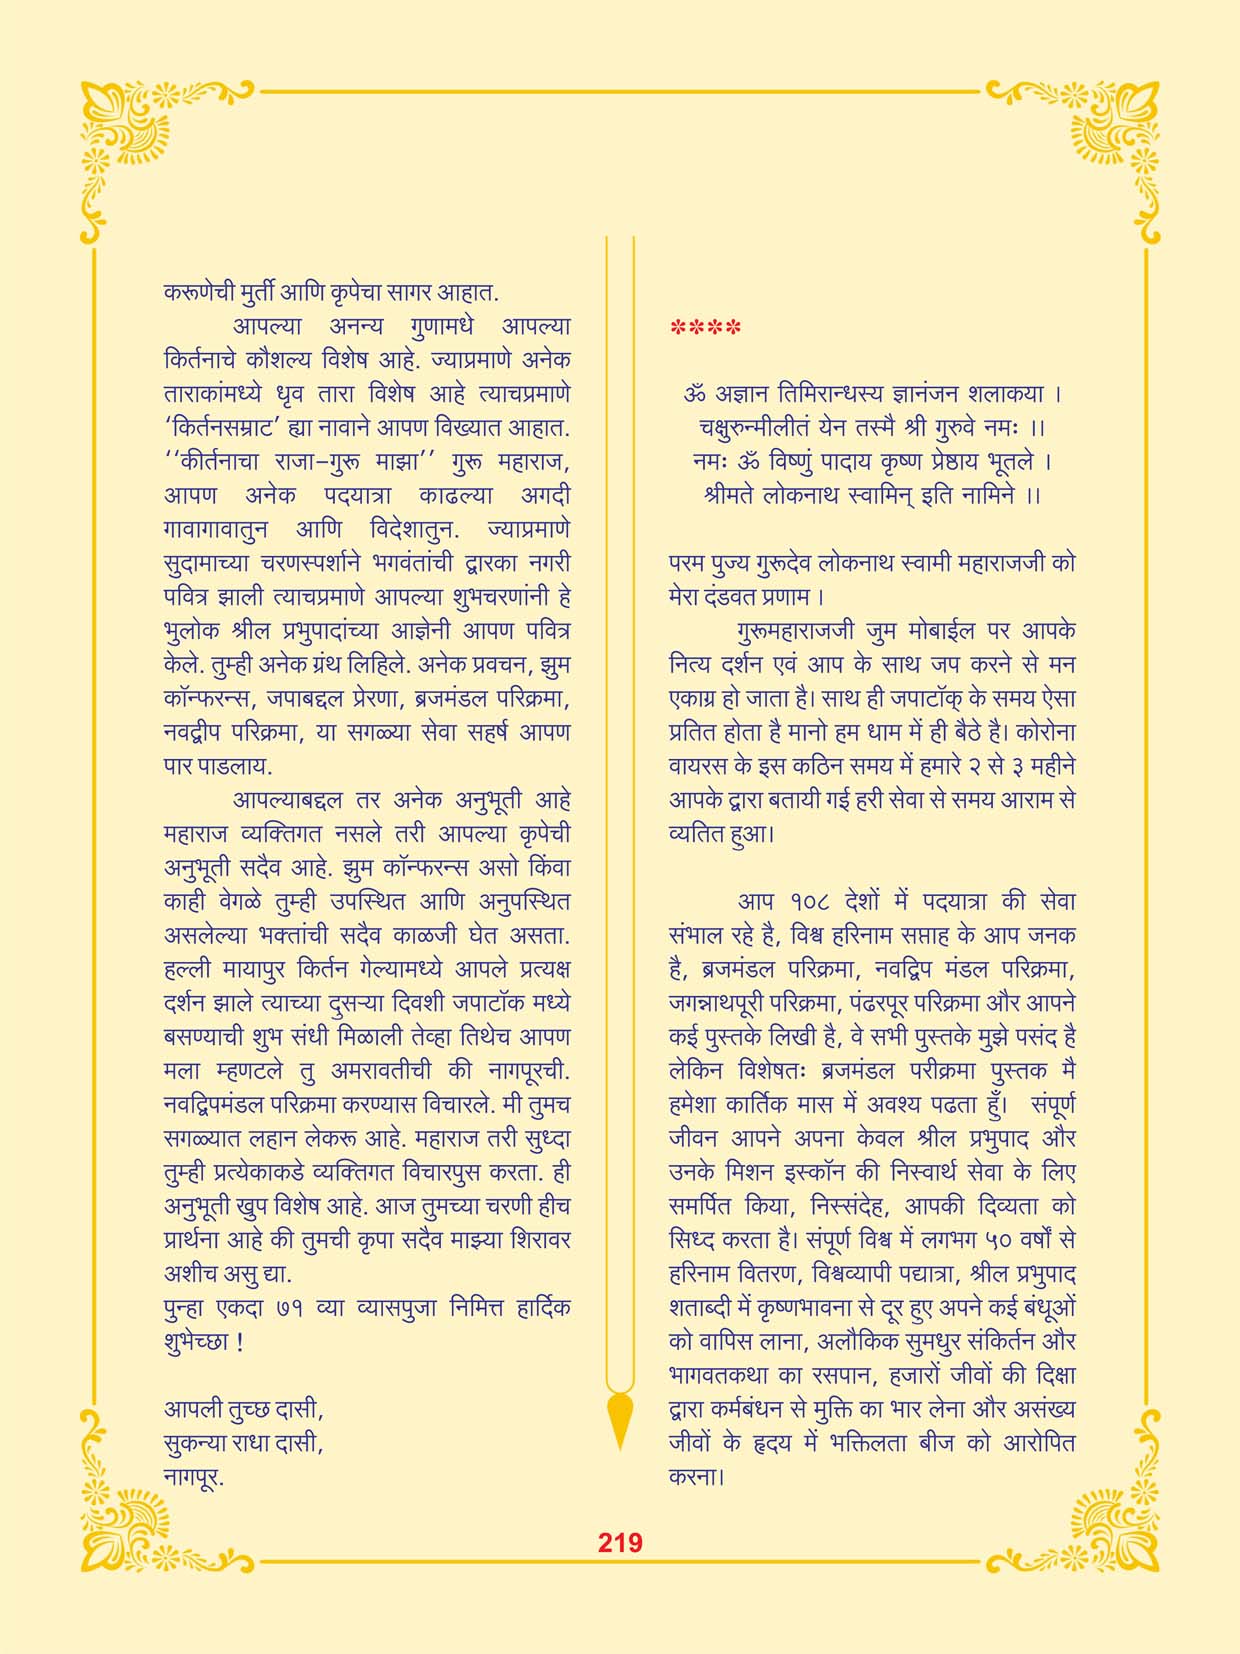 करूणेची मुर्ती आणि कृपेचा सागर आहात.
आपल्या अनन्य गुणामधे आपल्या
किर्तनाचे कौशल्य विशेष आहे. ज्याप्रमाणे अनेक
ताराकांमध्ये धृव तारा विशेष आहे त्याचप्रमाणे
‘किर्तनसम्राट’ ह्या नावाने आपण विख्यात आहात.
‘‘कीर्तनाचा राजा-गुरू माझा’’ गुरू महाराज,
आपण अनेक पदयात्रा काढल्या अगदी
गावागावातुन आणि विदेशातुन. ज्याप्रमाणे
सुदामाच्या चरणस्पर्शाने भगवंतांची द्वारका नगरी
पवित्र झाली त्याचप्रमाणे आपल्या शुभचरणांनी हे
भुलोक श्रील प्रभुपादांच्या आज्ञेनी आपण पवित्र
केले. तुम्ही अनेक ग्रंथ लिहिले. अनेक प्रवचन, झुम
कॉन्फरन्स, जपाबद्दल प्रेरणा, ब्रजमंडल परिक्रमा,
नवद्वीप परिक्रमा, या सगळ्या सेवा सहर्ष आपण
पार पाडलाय.
आपल्याबद्दल तर अनेक अनुभूती आहे
महाराज व्यक्तिगत नसले तरी आपल्या कृपेची
अनुभूती सदैव आहे. झुम कॉन्फरन्स असो किंवा
काही वेगळे तुम्ही उपस्थित आणि अनुपस्थित
असलेल्या भक्तांची सदैव काळजी घेत असता.
हल्ली मायापुर किर्तन गेल्यामध्ये आपले प्रत्यक्ष
दर्शन झाले त्याच्या दुसऱ्या दिवशी जपाटॉक मध्ये
बसण्याची शुभ संधी मिळाली तेव्हा तिथेच आपण
मला म्हणटले तु अमरावतीची की नागपूरची.
नवद्विपमंडल परिक्रमा करण्यास विचारले. मी तुमच
सगळ्यात लहान लेकरू आहे. महाराज तरी सुध्दा
तुम्ही प्रत्येकाकडे व्यक्तिगत विचारपुस करता. ही
अनुभूती खुप विशेष आहे. आज तुमच्या चरणी हीच
प्रार्थना आहे की तुमची कृपा सदैव माझ्या शिरावर
अशीच असु द्या.
पुन्हा एकदा ७१ व्या व्यासपुजा निमित्त हार्दिक
शुभेच्छा !
आपली तुच्छ दासी,
सुकन्या राधा दासी,
नागपूर.
****
ॐ अज्ञान तिमिरान्धस्य ज्ञानंजन शलाकया ।
चक्षुरुन्मीलीतं येन तस्मै श्री गुरुवे नमः ।।
नमः ॐ विष्णुं पादाय कृष्ण प्रेष्ठाय भूतले ।
श्रीमते लोकनाथ स्वामिन् इति नामिने ।।
परम पुज्य गुरूदेव लोकनाथ स्वामी महाराजजी को
मेरा दंडवत प्रणाम ।
गुरूमहाराजजी जुम मोबाईल पर आपके
नित्य दर्शन एवं आप के साथ जप करने से मन
एकाग्र हो जाता है। साथ ही जपाटॉक् के समय ऐसा
प्रतित होता है मानो हम धाम में ही बैठे है। कोरोना
वायरस के इस कठिन समय में हमारे २ से ३ महीने
आपके द्वारा बतायी गई हरी सेवा से समय आराम से
व्यतित हुआ।
आप १०८ देशों में पदयात्रा की सेवा
संभाल रहे है, विश्व हरिनाम सप्ताह के आप जनक
है, ब्रजमंडल परिक्रमा, नवद्विप मंडल परिक्रमा,
जगन्नाथपूरी परिक्रमा, पंढरपूर परिक्रमा और आपने
कई पुस्तके लिखी है, वे सभी पुस्तके मुझे पसंद है
लेकिन विशेषतः ब्रजमंडल परीक्रमा पुस्तक मै
हमेशा कार्तिक मास में अवश्य पढता हुँ। संपूर्ण
जीवन आपने अपना केवल श्रील प्रभुपाद और
उनके मिशन इस्कॉन की निस्वार्थ सेवा के लिए
समर्पित किया, निस्संदेह, आपकी दिव्यता को
सिध्द करता है। संपूर्ण विश्व में लगभग ५० वर्षों से
हरिनाम वितरण, विश्वव्यापी पद्यात्रा, श्रील प्रभुपाद
शताब्दी में कृष्णभावना से दूर हुए अपने कई बंधूओं
को वापिस लाना, अलौकिक सुमधुर संकिर्तन और
भागवतकथा का रसपान, हजारों जीवों की दिक्षा
द्वारा कर्मबंधन से मुक्ति का भार लेना और असंख्य
जीवों के हृदय में भक्तिलता बीज को आरोपित
करना।
219